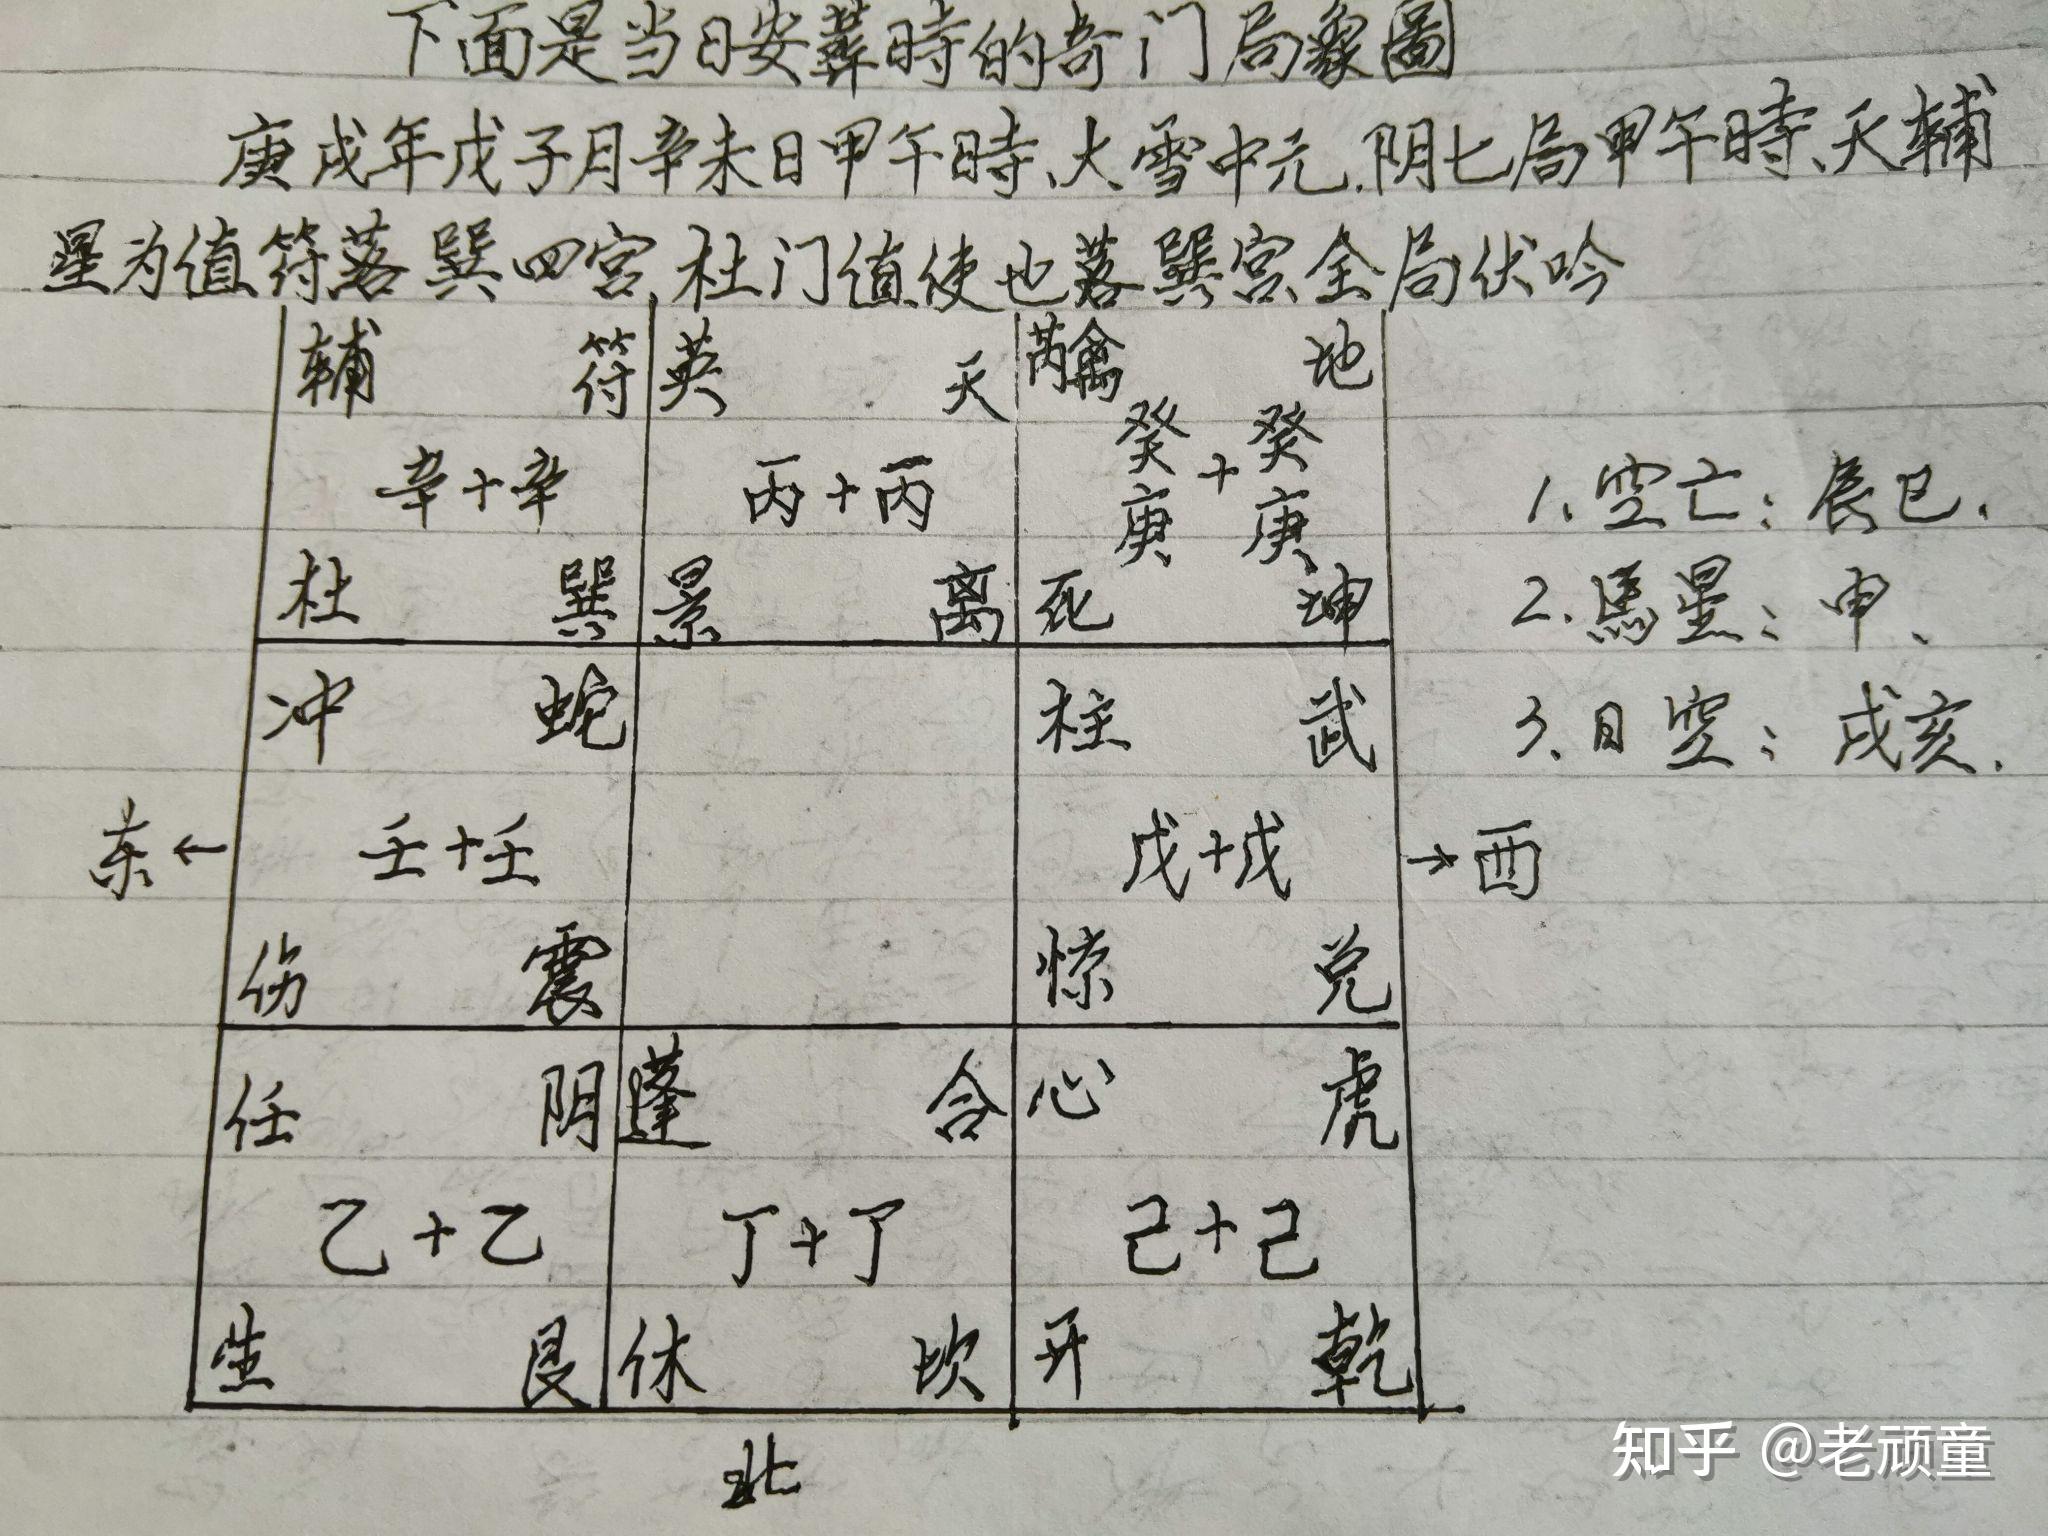 下面是当日安葬時的奇门局象圖
庚戌年戊子月辛未日甲午時、大雪中元.阴七局甲午時、天輔
星为值符落巽四宫,杜门值使也落巽宫,全局伏吟
輔 符 英 天 芮禽 地
辛+辛 丙+丙 癸+癸
庚 庚
杜 巽 景 离 死 坤
1.空亡:辰巳.
2.馬星:申、
3.日空:戌亥.
冲 蛇 柱 武
东← 壬+壬 戊+戊 →西
伤 震 惊 兑
任 阴 蓬 合 心 虎
乙+乙 丁+丁 己+己
生 艮 休 坎 开 乾
北
知乎 @老顽童